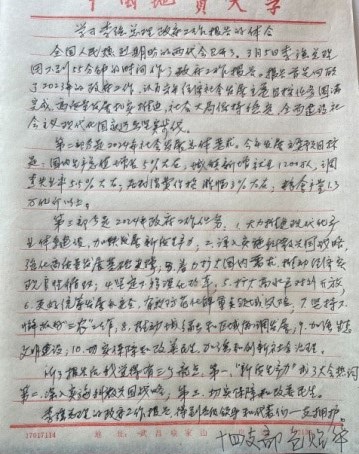 中国地质大学
学习李强总理政府工作报告的体会
全国人民热烈期盼的两代会召开了，3月5日李强总理
用不到55分钟的时间作了政府工作报告。报告首先回顾
了2023年的政府工作，认为去年经济社会发展主要目标任务圆满
完成，高质量发展扎实推进，社会大局保持稳定，全面建设社
会主义现代化国家迈出坚实步伐。
第二部分是2024年社会发展总体要求，今年发展主要预期目标
是：国内生产总值增长5%左右，城镇新增就业1200万人，调查
失业率5.5%左右，居民消费价格涨幅3%左右，粮食产量1.3
万亿斤以上。
第三部分是2024年政府工作任务，1、大力推进现代化产
业体系建设，加快发展新质生产力，2、深入实施科教兴国战略，
强化高质量发展基础支撑，3、着力扩大国内需求，推动经济实
现良性循环，4、坚定不移深化改革，5、扩大高水平对外开放
6、更好统筹发展和安全，有效防范化解重点领域风险，7、坚持不
懈抓好"三农"工作，8、推动城乡融合和区域协调发展，9、加强生态
文明建设，10、切实保障和改善民生，加强和创新社会治理。
听了报告后我觉得有三个亮点，第一，"新质生产力"成了大会热词
第二，深入实施科教兴国战略，第三，切实保障和改善民生。
李强总理的政府工作报告，得到委员和代表们一致拥护
十四支部
17017114